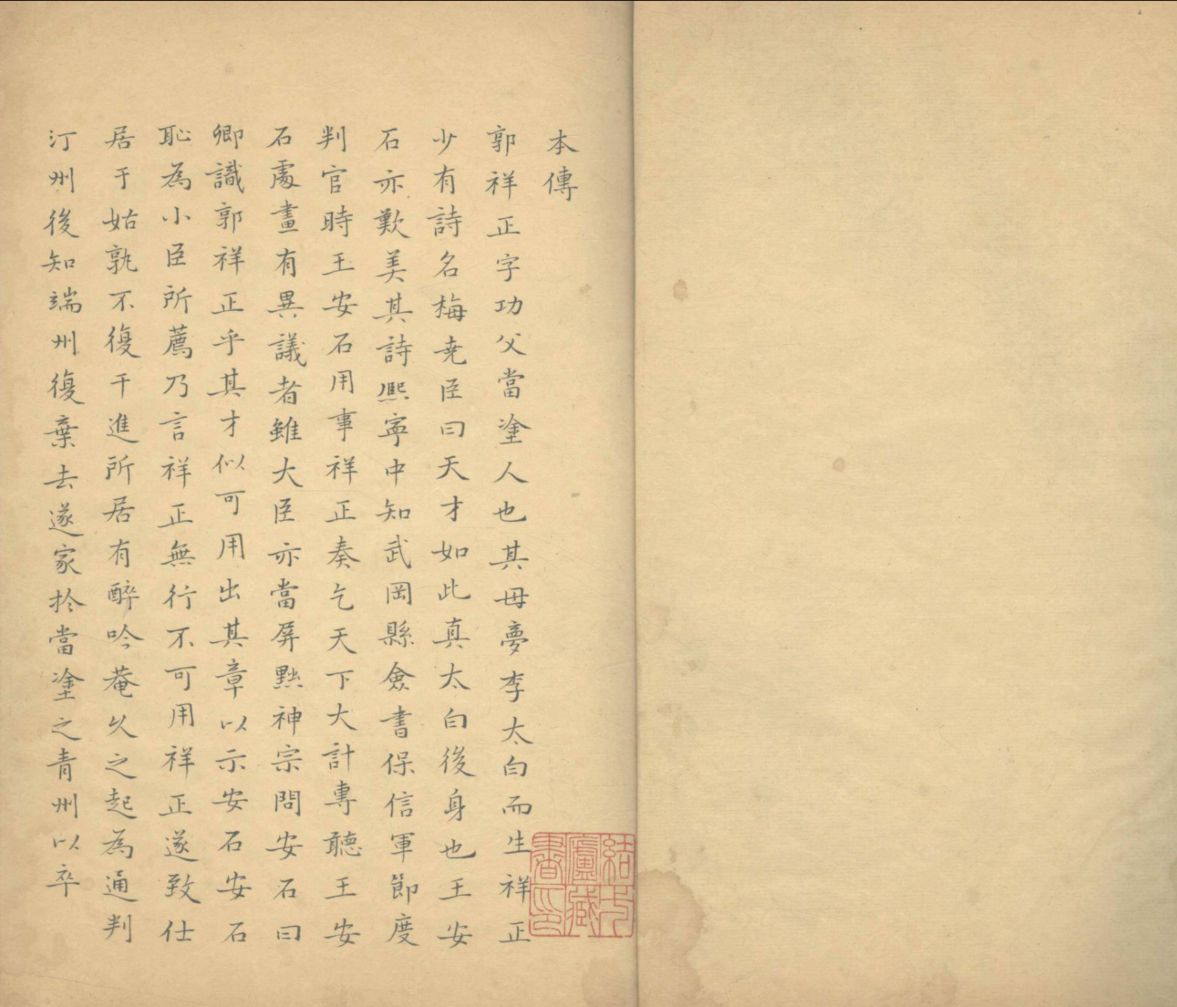 本傳
郭祥正字功父當塗人也其毋夢李太白而生祥正
少有詩名梅尭臣曰天才如此真太白後身也王安
石亦歎美其詩熈寧中知武岡縣僉書保信軍節度
判官時王安石用事祥正奏乞天下大計專聽王安
石處畫有異議者雖大臣亦當屏黜神宗問安石曰
卿識郭祥正乎其才似可用出其章以示安石安石
恥為小臣所薦乃言祥正無行不可用祥正遂致仕
居于姑孰不復干進所居有醉吟菴久之起為通判
汀州後知端州復棄去遂家於當塗之青州以卒